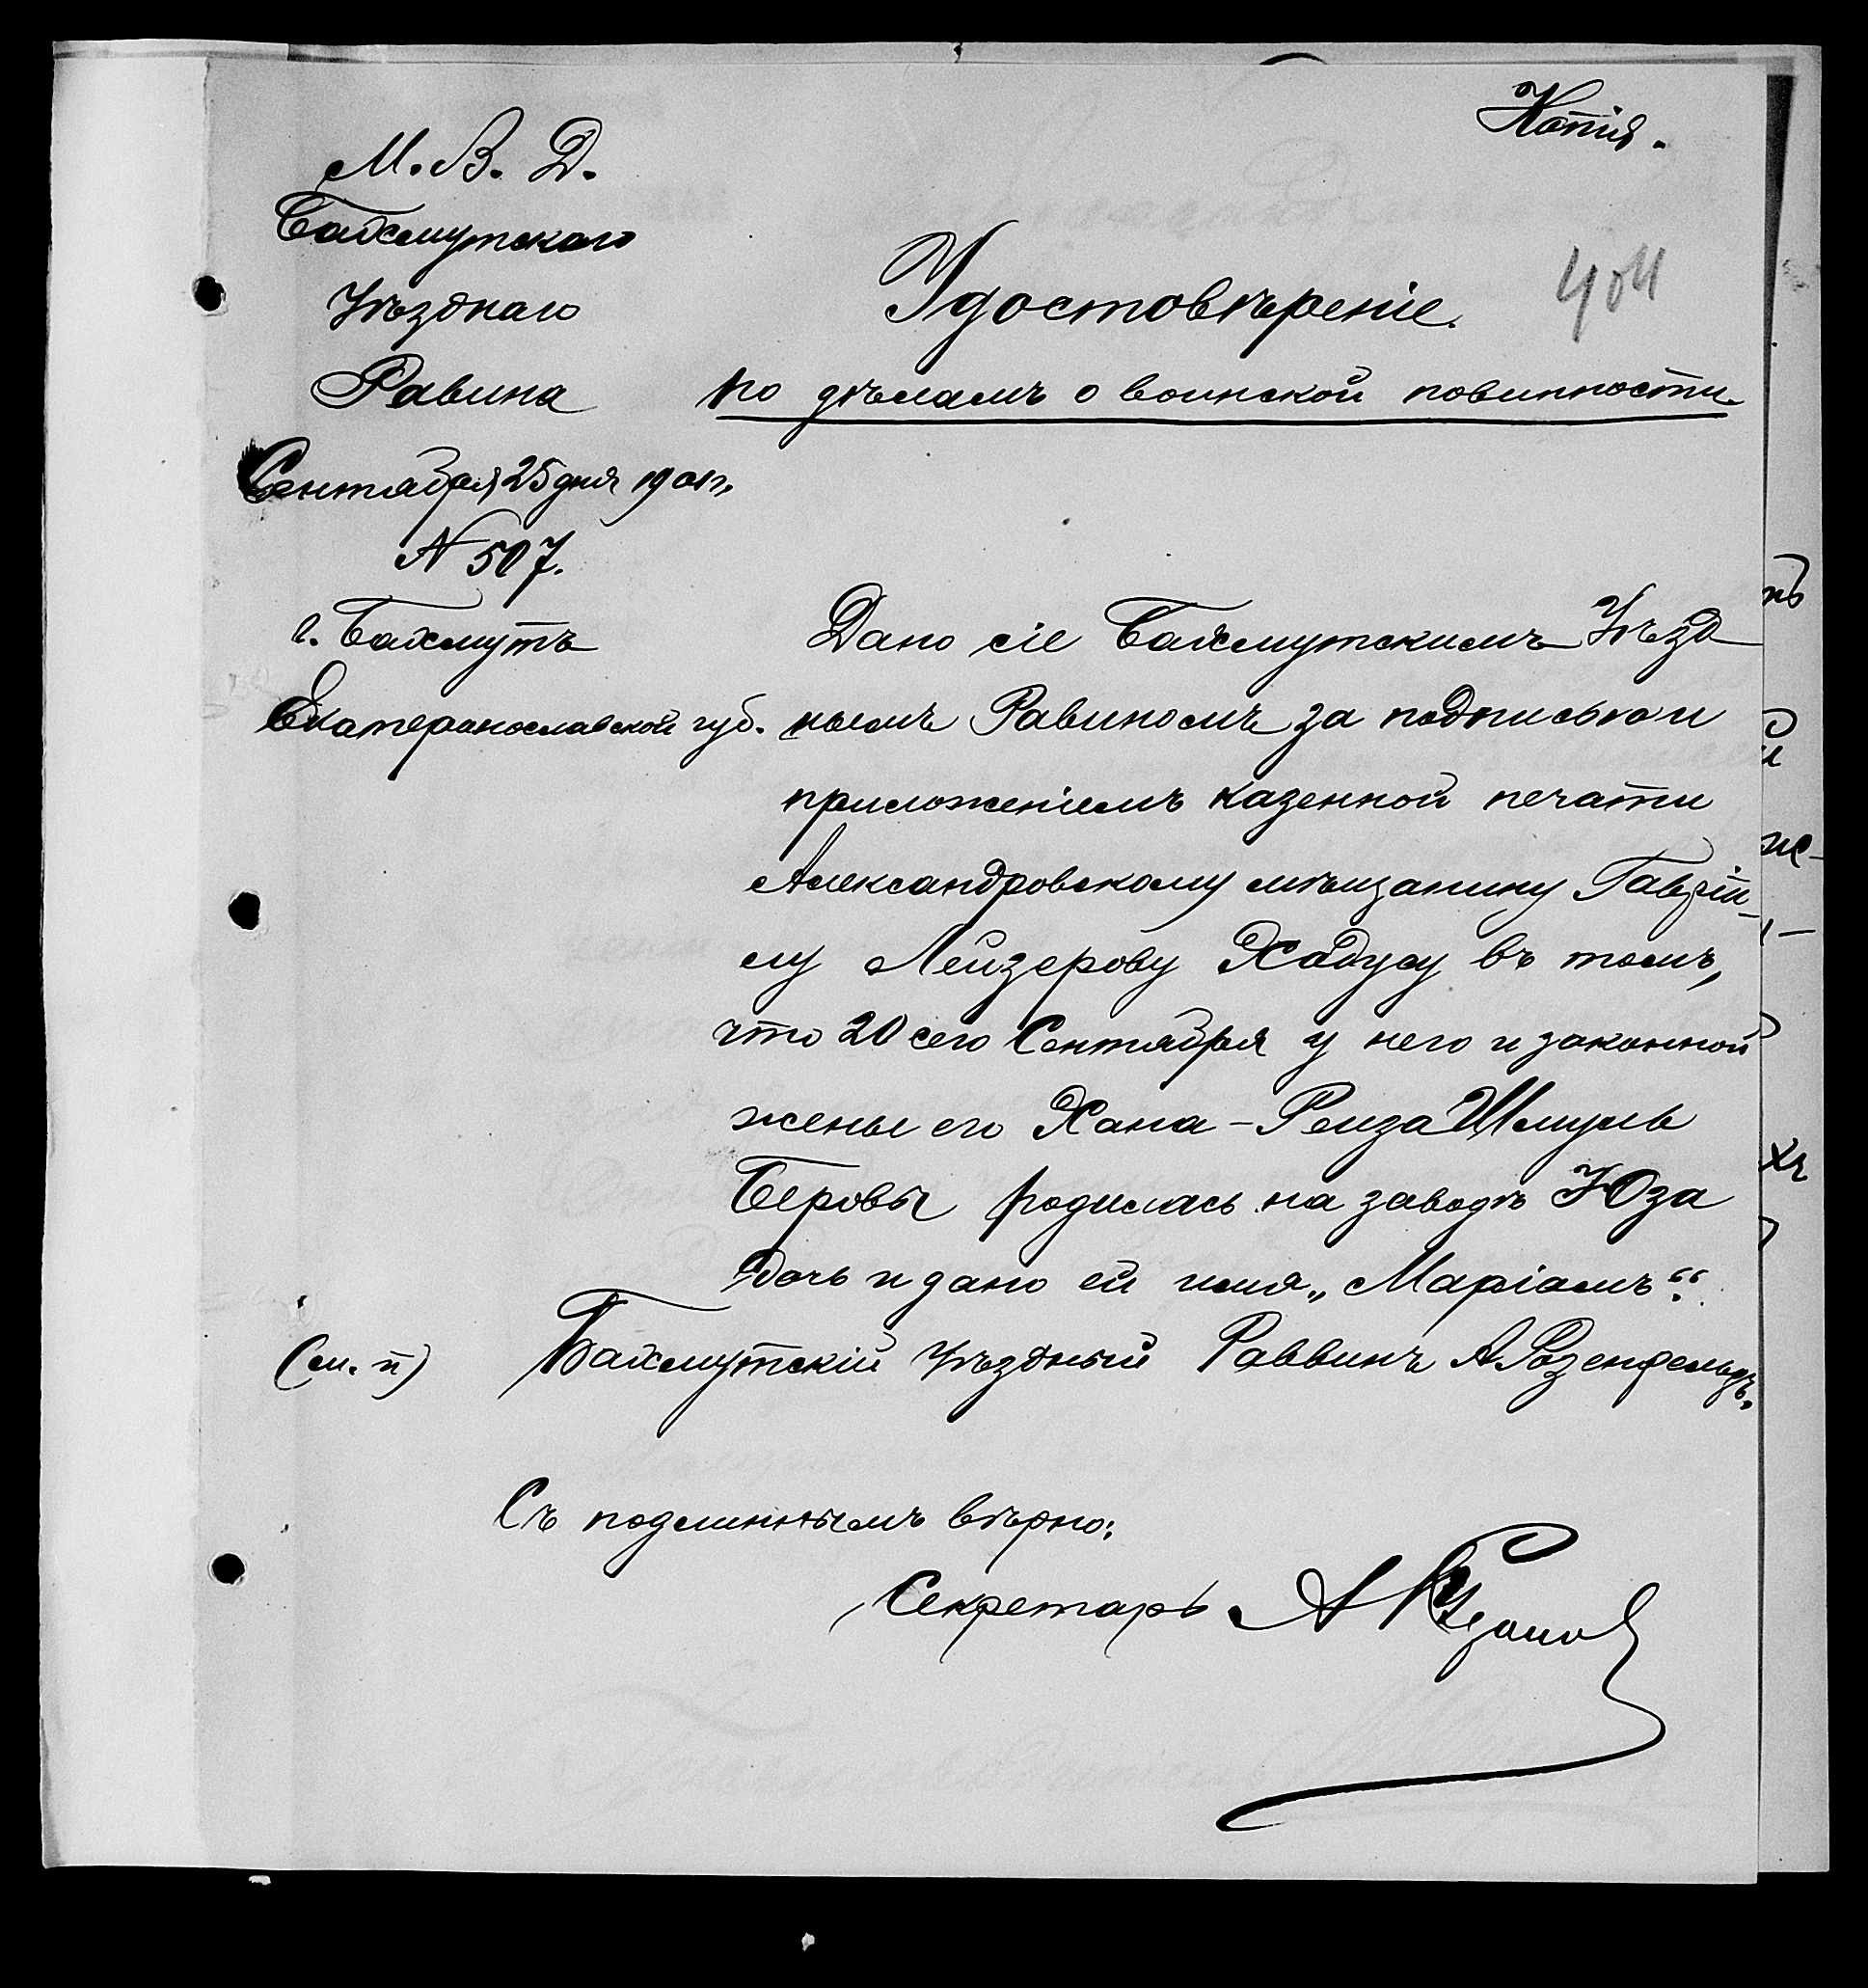 Копія.
М. В. Д.
Бахмутскаго
Уѣзднаго
Равина
Сентября 25 дня 1901 г.
N 507.
г. Бахмутъ
Екатеринославской губ.
404
Удостовѣреніе.
по дѣламъ о воинской повинности.
Дано сіе Бахмутскимъ Уѣзд
нымъ Равиномъ за подписью и
приложеніемъ казенной печати
Александровскому мѣщанину Гаврій-
лу Лейзерову Хадусу въ томъ,
что 20 сего Сентября у него и законной
жены его Хана-Рейза Шмуль
Беровы родилась на заводѣ Юза
дочь и дано ей имя „Маріамъ“.
(м. п) Бахмутскій Уѣздный Раввинъ А Розенфельдъ.
Съ подлиннымъ вѣрно:
Секретарь А